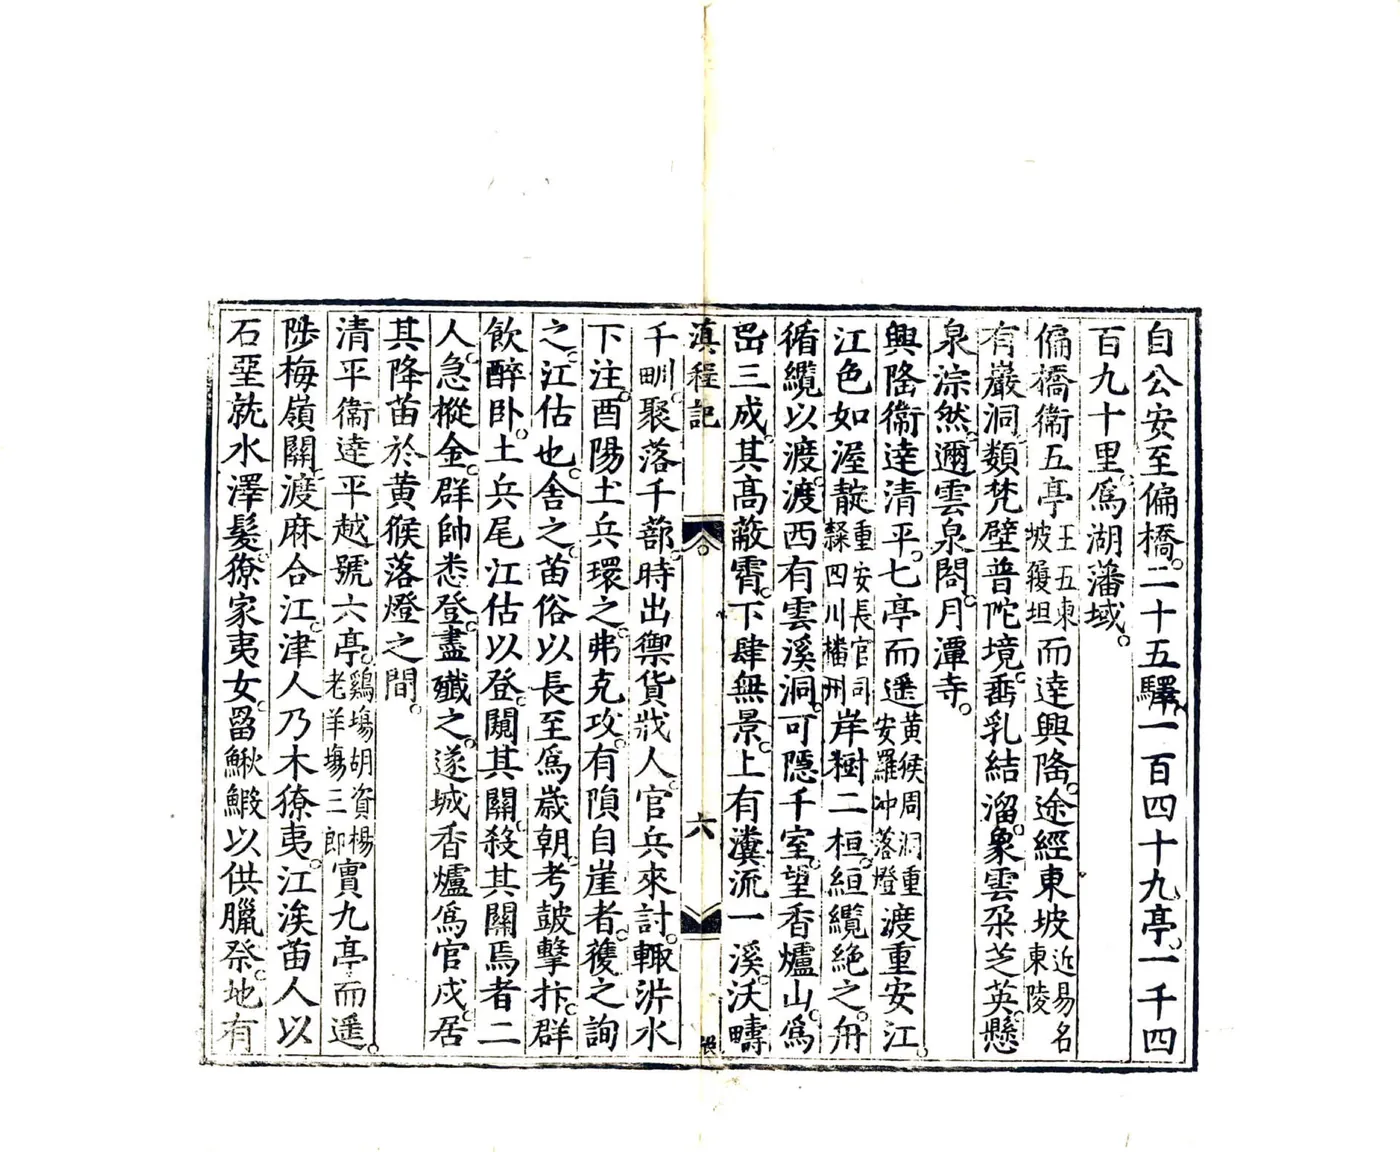 自公安至偏橋。二十五驛。一百四十九亭。一千四
百九十里。爲湖藩域。
偏橋衞五亭王五東坡籮坦而逹興隆。途經東坡近易名東陵
有巖洞。類梵壁普陀境。垂乳結溜。象雲朶芝英。懸
泉淙然。邇雲泉閣。月潭寺。
興隆衞逹清平。七亭而遥黄猴周洞重安羅冲落燈渡重安江。
江色如渥靛重安長官司隸四川播州岸樹二桓。絙纜絶之。舟
循纜以渡。渡西有雲溪洞。可隱千室。望香爐山。爲
嵒三成。其高蔽霄。下肆無景。上有瀵流一溪。沃疇
滇程記
六
千甽。聚落千蔀。時出禦貨戕人。官兵來討。輙泋水
下注。酉陽土兵環之。弗克攻。有隙自崖者。䕶之詢
之。江估也。舍之。苗俗以長至爲歲朝。考鼓擊抃。群
飲醉卧。土兵尾江估以登。闚其關。殺其關焉者二
人。急摐金。群帥悉登。盡殲之。遂城香爐爲官戍。居
其降苗於黄猴落燈之間。
清平衞逹平越。號六亭。鷄場胡資楊老羊塲三郎實九亭而遥。
陟梅嶺關。渡麻合江。津人乃木獠夷。江涘苗人以
石堊就水澤髮。獠家夷女。畱鰍鰕以供臘祭。地有